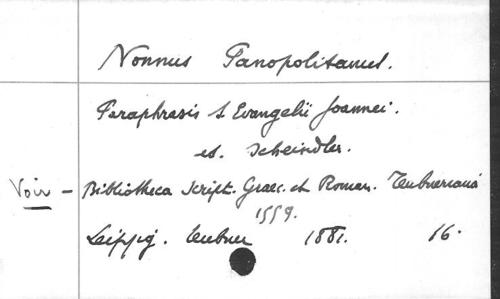 Nonnus Panopolitanus.
Paraphrasis S Evangelii Joannei.
ed. Scheindler.
Voir - Bibliotheca Script. Graec. et Roman. Teubneriana
1559.
Leipzig. Teubner 1881. 16.